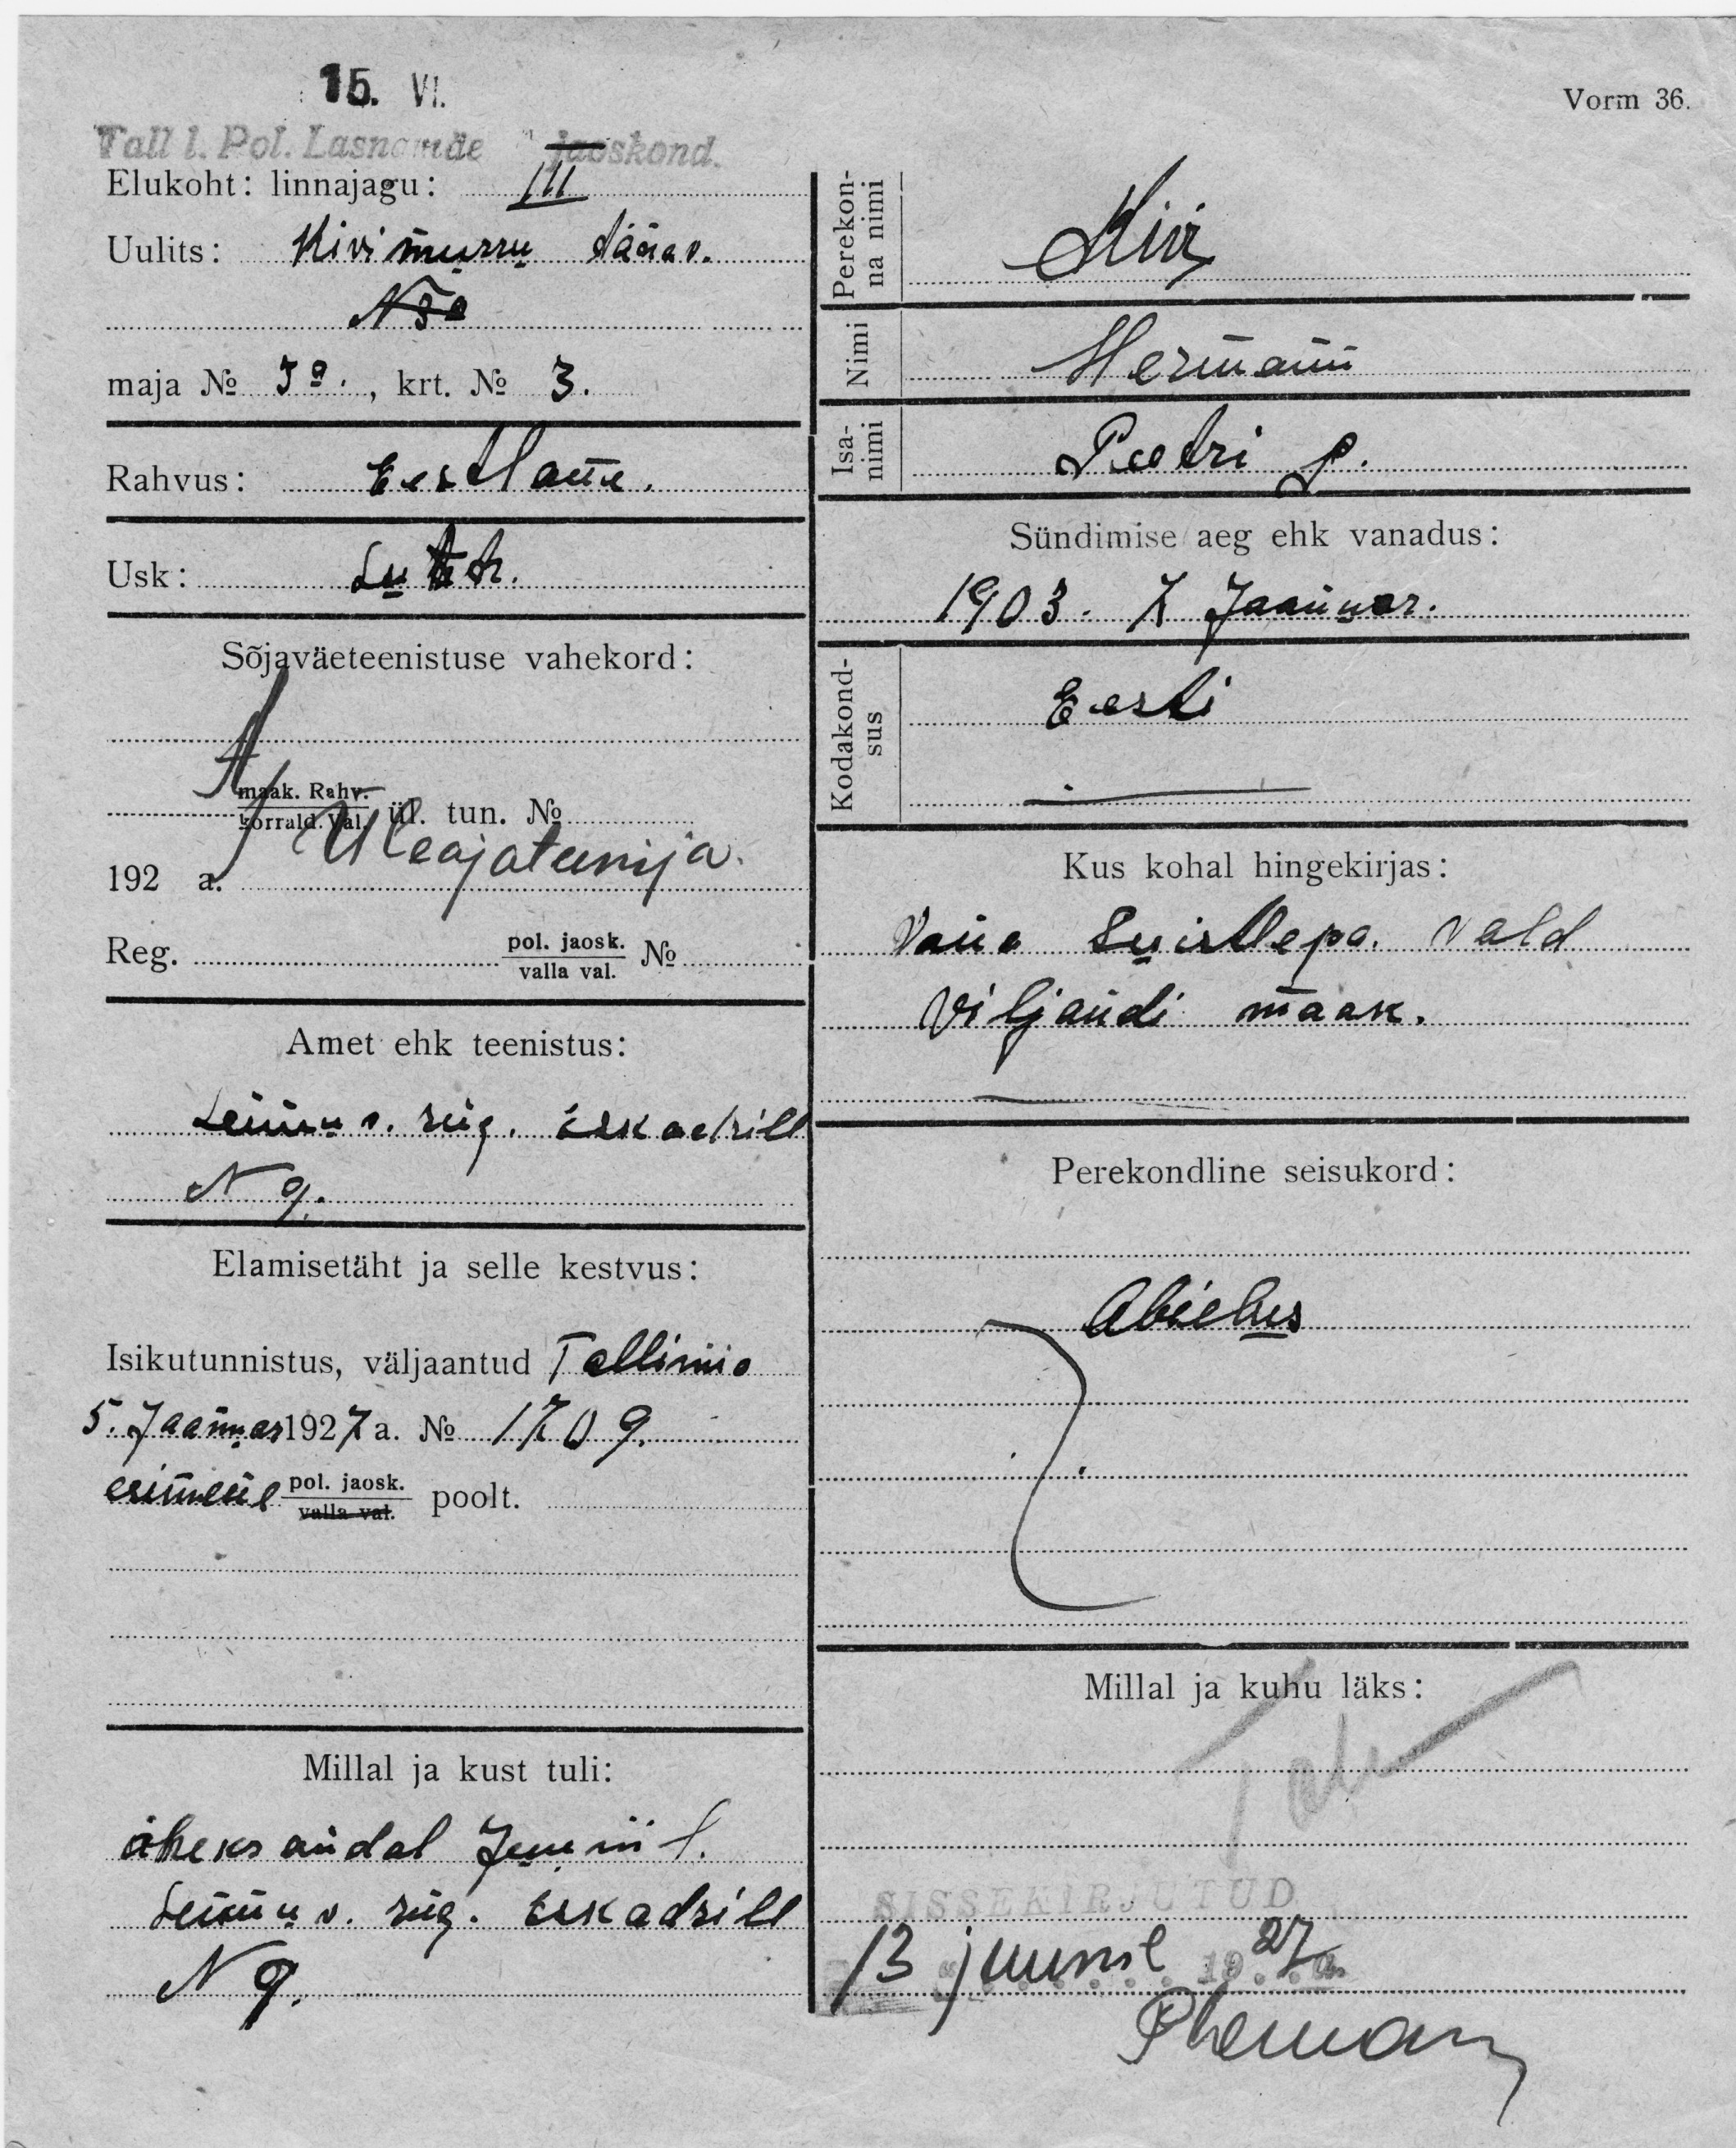 15. VI.
Vorm 36.
Tall l. Pol. Lasnamäe jaoskond.
Elukoht: linnajagu: III
Uulits: Kivimurru tänav.
N 5a
maja № 5a., krt. № 3.
Rahvus: Eestlane.
Usk: Luth.
Sõjaväeteenistuse vahekord:
maak. Rahv.
korrald. Val. ül. tun. №
Üleajateenija.
192 a.
Reg. pol. jaosk. №
valla val.
Amet ehk teenistus:
Lennu v. rüg. Eskadrill
N 9.
Elamisetäht ja selle kestvus:
Isikutunnistus, väljaantud Tallinna
5. Jaanuar 1927 a. № 1709.
esimene pol. jaosk. poolt.
valla val.
Millal ja kust tuli:
üheksandal Juunil.
Lennu v. rüg. Eskadrill
N 9.
Perekon-
na nimi
Kivi
Nimi
Hermann
Isa-
nimi
Peetri p.
Sündimise aeg ehk vanadus:
1903. 7 Jaanuar.
Kodakond-
sus
Eesti
Kus kohal hingekirjas:
Vana Suislepa. vald
Viljandi maak.
Perekondline seisukord:
Abielus
Millal ja kuhu läks:
SISSEKIRJUTUD
13 juunil 1927 a.